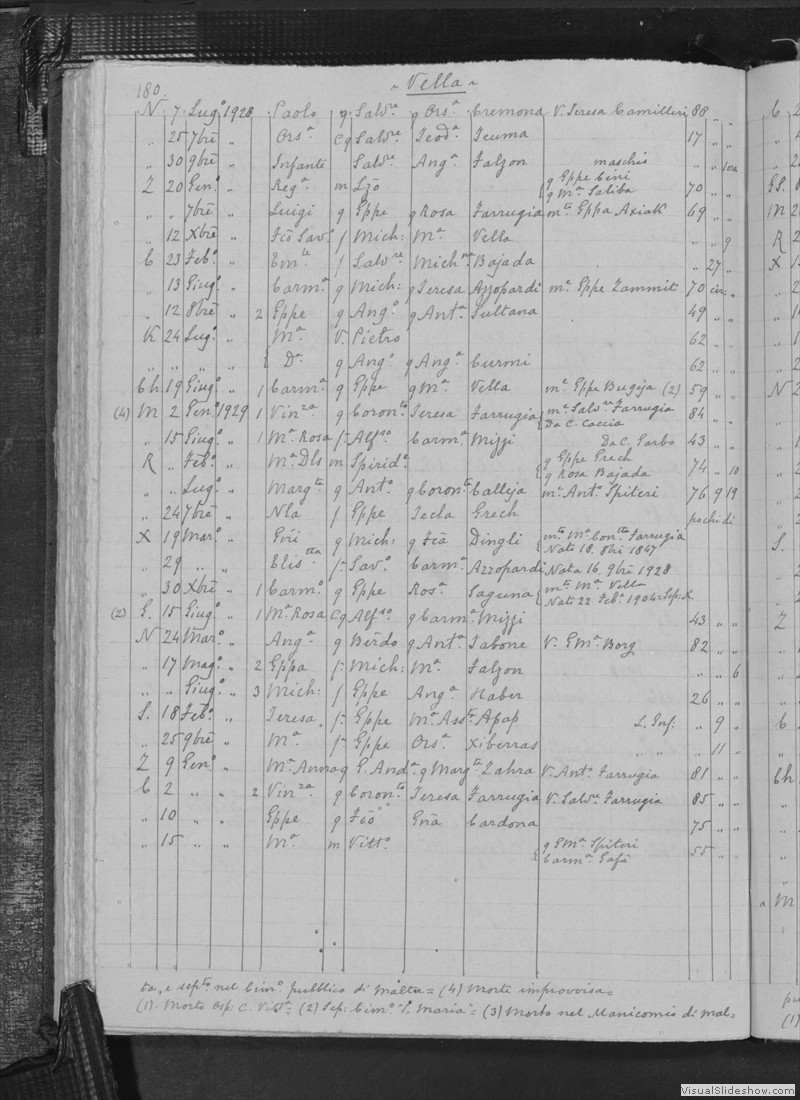 180.
~ Vella ~
N 7 Lug.º 1928 Paolo g Salv.re g Ors.a Cremona V. Teresa Camilleri 88 " "
" 25 7bre " Ors.a Cg Salv.re Teod.a Teuma 17 " "
" 30 9bre " Infante Salv.re Ang.a Falzon maschio " " 1 ora
Z 20 Gen.º " Reg.a m Lzo { g Eppe Cini g M.a Saliba 70 " "
" " 7bre " Luigi g Eppe g Rosa Farrugia m.to Eppa Axiak 69 " "
" 12 Xbre " Fco Sav.º f Mich: M.a Vella " " 9
C 23 Feb.º " Em.le f Salv.re Mich.na Bajada " 27 "
" 13 Giug.º " Carm.a g Mich: g Teresa Azzopardi m.e Eppe Zammit 70 in: "
" 12 8bre " 2 Eppe g Ang.º g Ant.a Sultana 49 " "
K 24 Lug.º " M.a V. Pietro 62 " "
" " " " { D.a g Ang.º g Ang.a Curmi 62 " "
Ch 19 Giug.º " 1 Carm.a g Eppe g M.a Vella m.e Eppe Bugeja (2) 59 " "
(4) M 2 Gen.º 1929 1 Vin.za g Coron.to Teresa Farrugia { m.e Salv.re Farrugia Da C. Caccia 84 " "
" 15 Giug.º " 1 M.a Rosa f Alf.so Carm.a Mizzi Da C. Garbo 43 " "
R " Feb.º " M.a Dls m Spirid.e { g Eppe Grech g Rosa Bajada 74 " 10
" " Lug.º " Marg.ta g Ant.º g Coron.ta Calleja m.e Ant.º Spiteri 76 9 19
" 24 7bre " Nla f Eppe Tecla Grech pochi di
X 19 Mar.º " Gvi g Mich: g Fca Dingli { m.to M.a Con.tta Farrugia Nato 18. 8bre 1847
" 29 " " Elis.tta f Sav.º Carm.a Azzopardi Nata 16. 9bre 1928
" 30 Xbre " 1 Carm.º g Eppe Ros.a Laguna { m.to M.a Vella Nato 22 Feb.º 1904=Sep: X
(2) G. 15 Giug.º " 1 M.a Rosa Cg Alf.so g Carm.a Mizzi 43 " "
N 24 Mar.º " Ang.a g Berdo g Ant.a Tabone V. G M.a Borg 82 " "
" 17 Mag.º " 2 Eppa f Mich: M.a Falzon " " 6
" " Giug.º " 3 Mich: f Eppe Ang.a Haber 26 " "
S. 18 Feb.º " Teresa f Eppe M.a Ass.ta Apap L. Inf: " 9 "
" 25 9bre " M.a f Eppe Ors.a Xiberras " " " 11 "
Z 9 Gen.º " M.a Anna g G. And.a g Marg.ta Zahra V. Ant.º Farrugia 81 " "
C 2 " " 2 Vin.za g Coron.to Teresa Farrugia V. Salv.re Farrugia 85 " "
" 10 " " Eppe g Fco Gna Cardona 75 " "
" 15 " " M.a m Vitt.º { g G M.a Spiteri Carm.a Gafà 55 " "
ta, e sep.to nel Cim.º pubblico di Malta = (4) Morte improvvisa =
(1). Morto Osp: C. Vitt.a = (2) Sep: Cim.º "S. Maria" = (3) Morto nel Manicomio di Mal-
VisualSlideshow.com